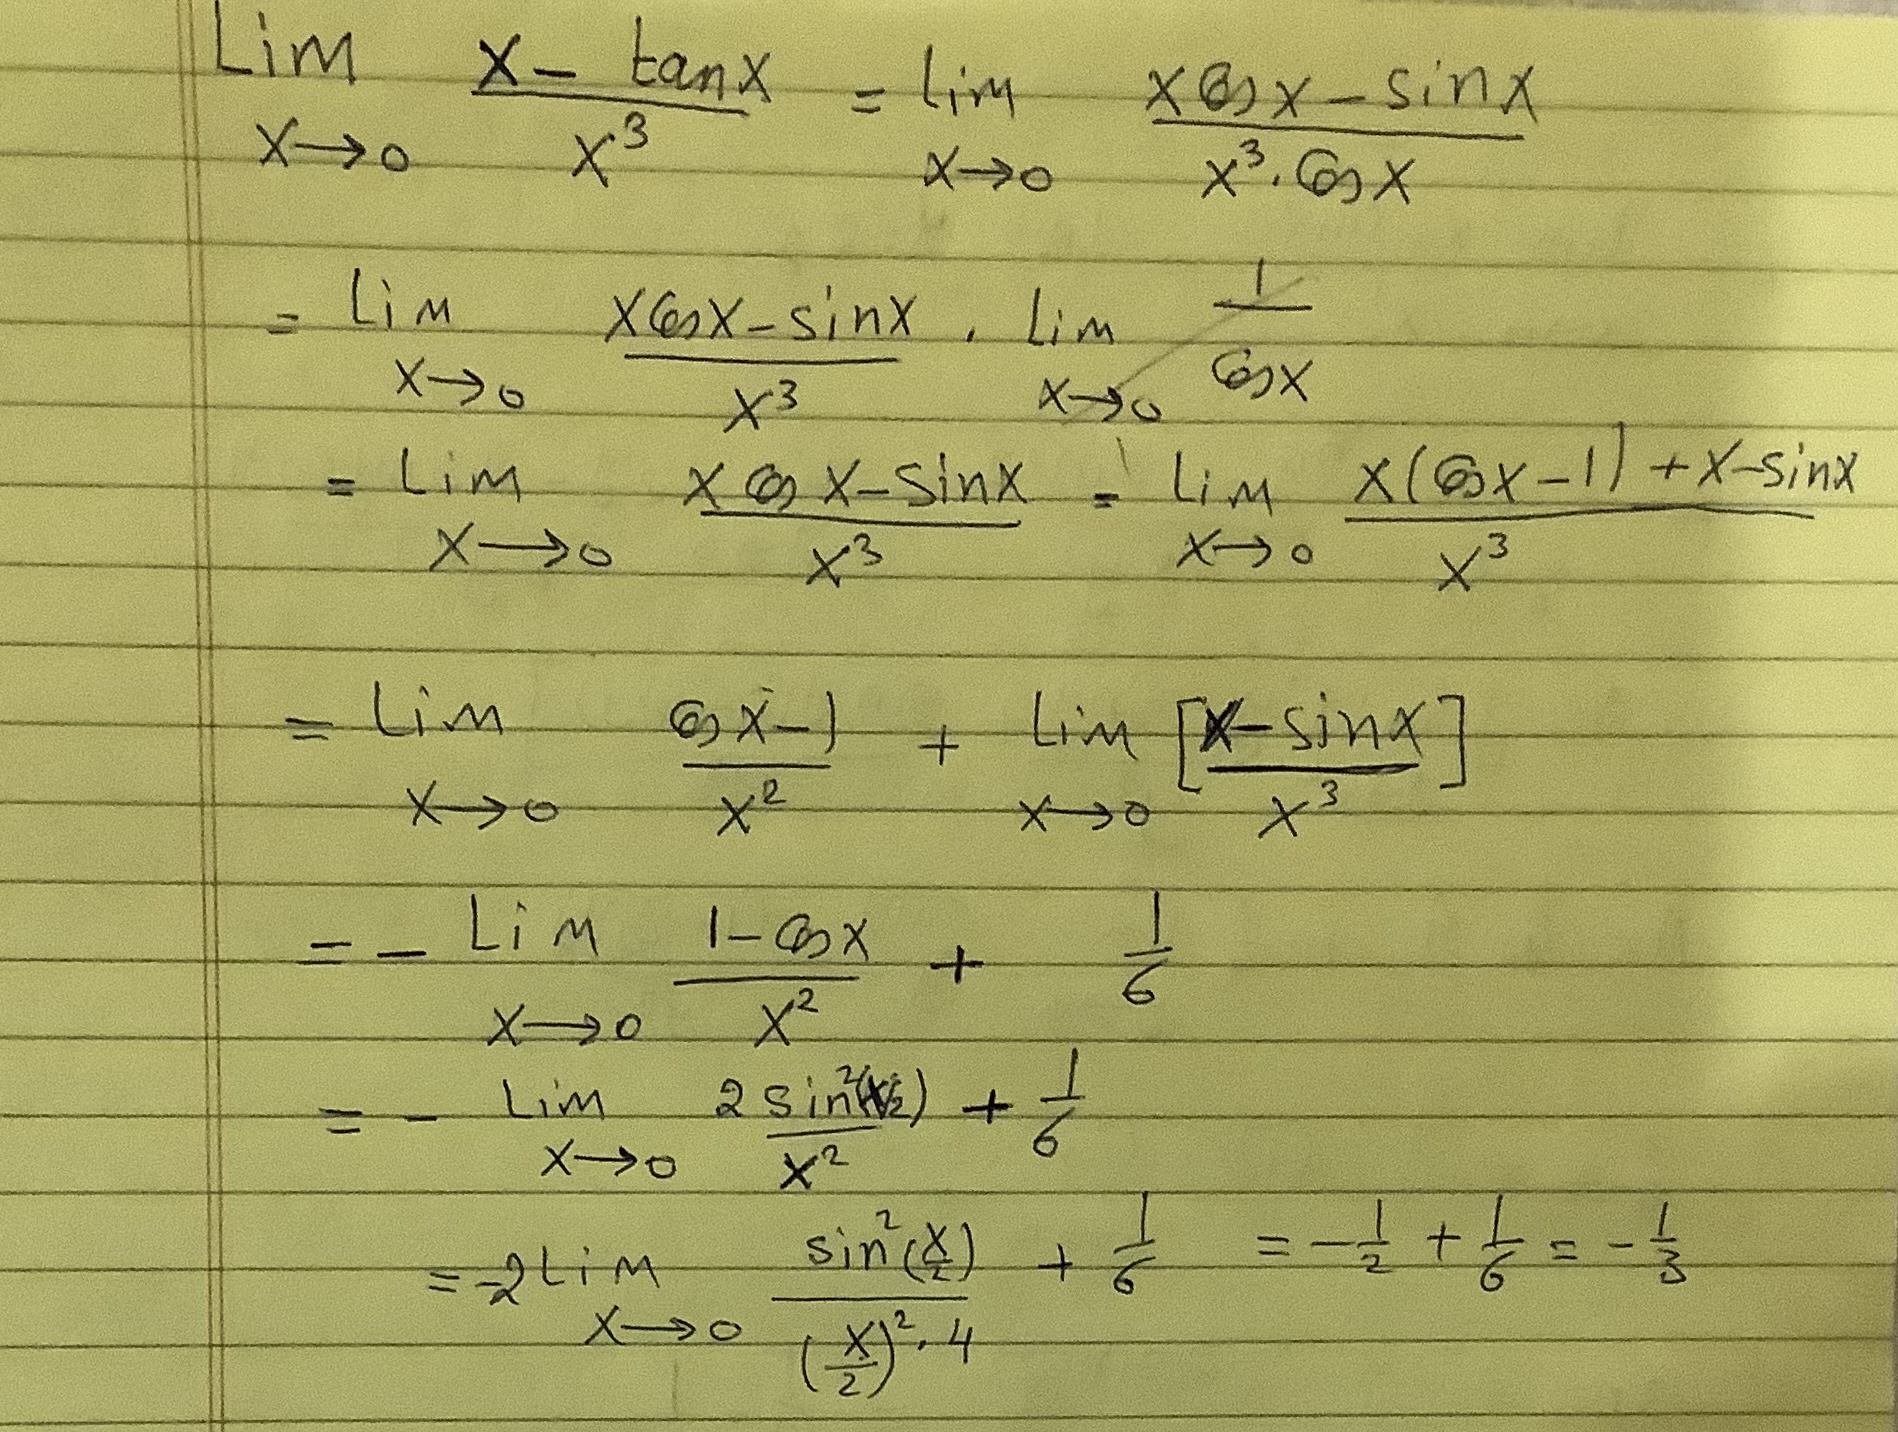 Lim x→0 (x - tanx)/x³ = lim x→0 (x cos x - sinx)/(x³ . cos x)
= Lim x→0 (x cos x - sinx)/x³ . Lim x→0 1/cos x
= Lim x→0 (x cos x - sinx)/x³ = Lim x→0 (x(cos x - 1) + x - sinx)/x³
= Lim x→0 (cos x - 1)/x² + Lim x→0 [(x - sinx)/x³]
= - Lim x→0 (1 - cos x)/x² + 1/6
= - Lim x→0 2 sin²(x/2)/x² + 1/6
= -2 Lim x→0 sin²(x/2)/((x/2)² . 4) + 1/6 = -1/2 + 1/6 = -1/3